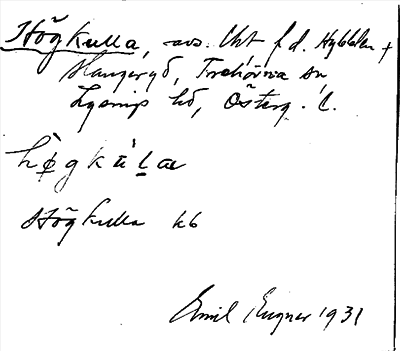 Högkulla, avs. Uht f.d. Hybblen +
Haugeryd, Trehörna sn
Lysings hd, Österg. l.
hø̀gkùl̠a
Högkulla kb
Emil Eugner 1931